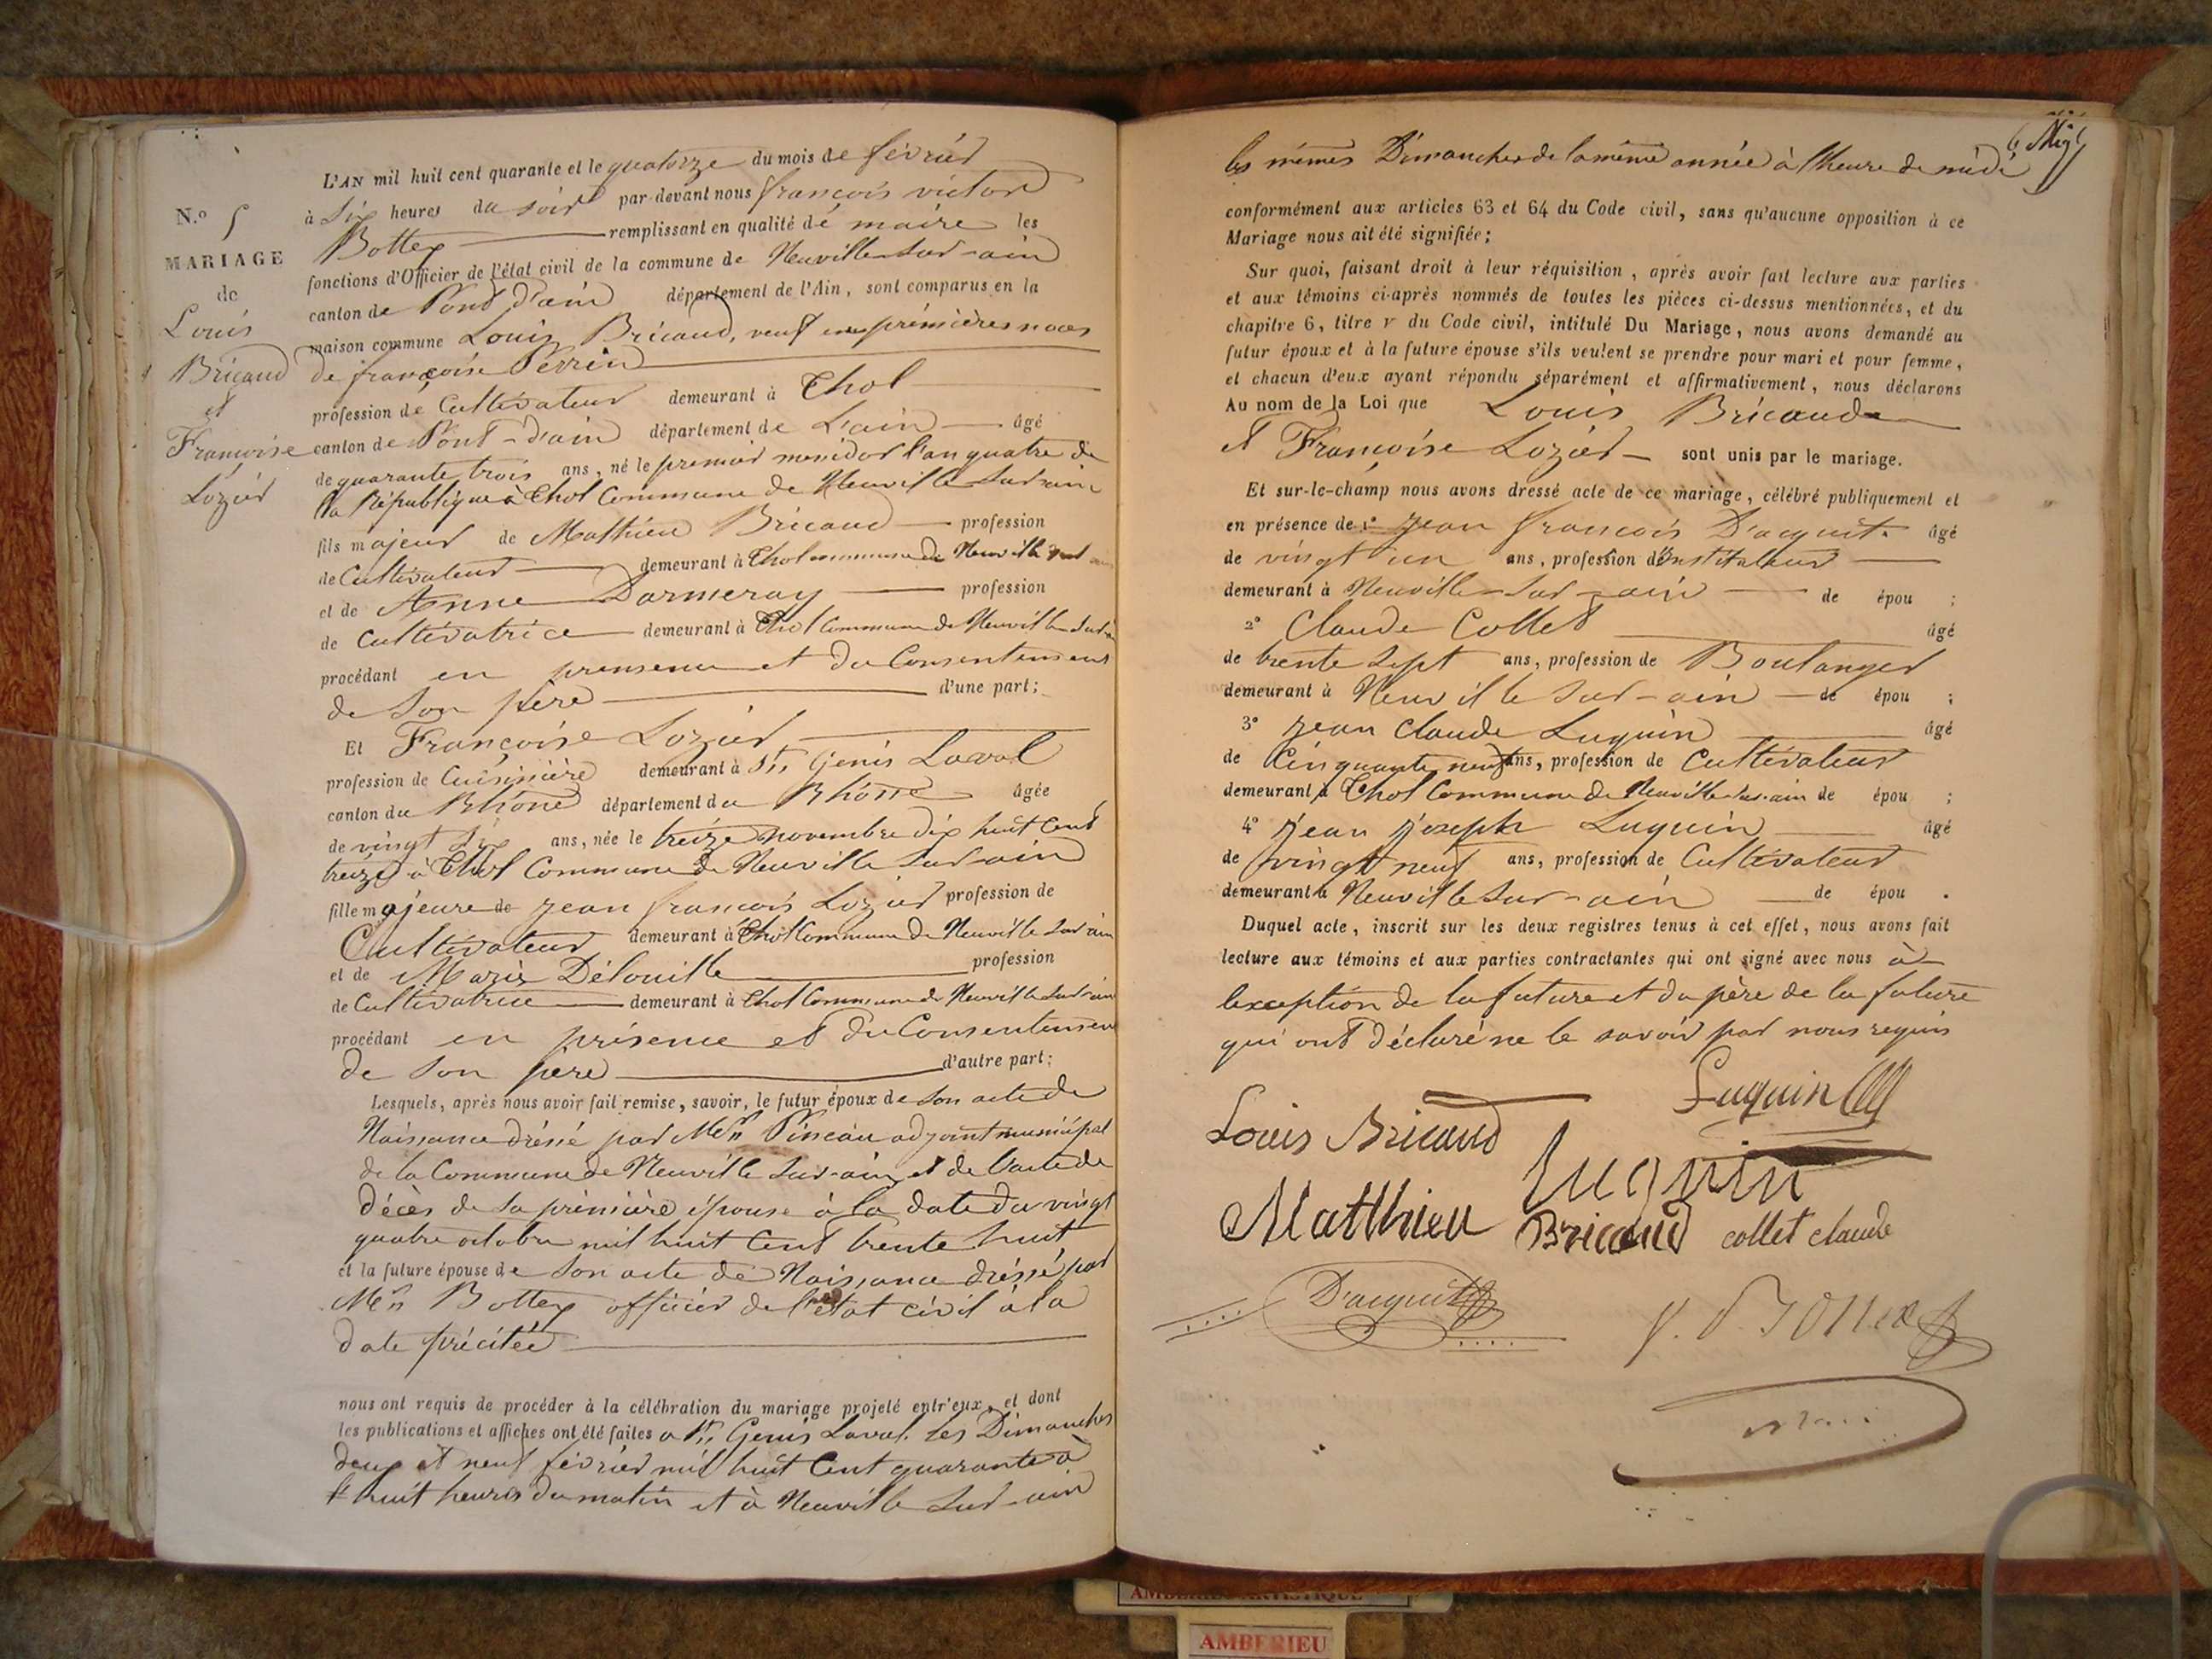 L'AN mil huit cent quarante et le quatorze du mois de février
à Six heures du soir par-devant nous françois victor
Bottex remplissant en qualité de maire les
fonctions d'Officier de l'état civil de la commune de Neuville sur-ain
canton de Pont d'ain département de l'Ain, sont comparus en la
maison commune Louis Bricaud, veuf en premières noces
de françoise Perrin
profession de Cultivateur demeurant à Thol
canton de Pont-d'ain département de L'ain âgé
de quarante trois ans, né le premier messidor l'an quatre de
la République à Thol Commune de Neuville Sur ain
fils majeur de Mathieu Bricaud profession
de Cultivateur demeurant à Thol commune de Neuville sur ain
et de Anne Darmeray profession
de Cultivatrice demeurant à Thol Commune de Neuville Sur ain
procédant en prensence et du Consentement
de Son père d'une part;
N.o 5
MARIAGE
de
Louis
Bricaud
et
Francoise
Lozier
Et Françoise Lozier
profession de Cuisinière demeurant à St. Genis Laval
canton du Rhône département du Rhône âgée
de vingt six ans, née le treize novembre dix huit Cent
treize à Thol Commune de Neuville Sur-ain
fille majeure de jean françois Lozier profession de
Cultivateur demeurant à Thol Commune de Neuville Sur ain
et de Marie Délouille profession
de Cultivatrice demeurant à Thol Commune de Neuville Sur ain
procédant en présence et du Consentement
de Son père d'autre part;
Lesquels, après nous avoir fait remise, savoir, le futur époux de Son acte de
Naissance dréssé par Mr. Pineau adjoint municipal
de la Commune de Neuville Sur-ain et de l'acte de
décès de Sa prémière épouse à la date du vingt
quatre octobre mil huit Cent trente huit
et la future épouse de Son acte de Naissance dréssé par
Mr. Bottex officier de l'état civil à la
date précitée
nous ont requis de procéder à la célébration du mariage projeté entr'eux, et dont
les publications et affiches ont été faites a St. Genis Laval les Dimanches
deux et neuf février mil huit Cent quarante à
huit heures du matin et à Neuville Sur-ain
les mêmes Dimanches de la même année à l'heure de midi
conformément aux articles 63 et 64 du Code civil, sans qu'aucune opposition à ce
Mariage nous ait été signifiée;
Sur quoi, faisant droit à leur réquisition, après avoir fait lecture aux parties
et aux témoins ci-après nommés de toutes les pièces ci-dessus mentionnées, et du
chapitre 6, titre v du Code civil, intitulé Du Mariage, nous avons demandé au
futur époux et à la future épouse s'ils veulent se prendre pour mari et pour femme,
et chacun d'eux ayant répondu séparément et affirmativement, nous déclarons
Au nom de la Loi que Louis Bricaud
et Françoise Lozier sont unis par le mariage.
Et sur-le-champ nous avons dressé acte de ce mariage, célébré publiquement et
en présence de 1o jean francois D'acquit âgé
de vingt un ans, profession d'instituteur
demeurant à Neuville-Sur-ain de épou ;
2o Claude Collet âgé
de trente Sept ans, profession de Boulanger
demeurant à Neuville Sur-ain de épou ;
3o jean Claude Luquin âgé
de Cinquante neuf ans, profession de Cultivateur
demeurant à Thol Commune de Neuville-Sur-ain de épou ;
4o jean joseph Luquin âgé
de vingt neuf ans, profession de Cultivateur
demeurant à Neuville Sur-ain de épou .
Duquel acte, inscrit sur les deux registres tenus à cet effet, nous avons fait
lecture aux témoins et aux parties contractantes qui ont signé avec nous à
lexception de la future et du père de la future
qui ont déclaré ne le savoir par nous requis
Luquin
Louis Bricaud
Luquin
Matthieu Bricaud collet claude
D'acquit
AMBERIEU ARTISTIQUE
AMBERIEU